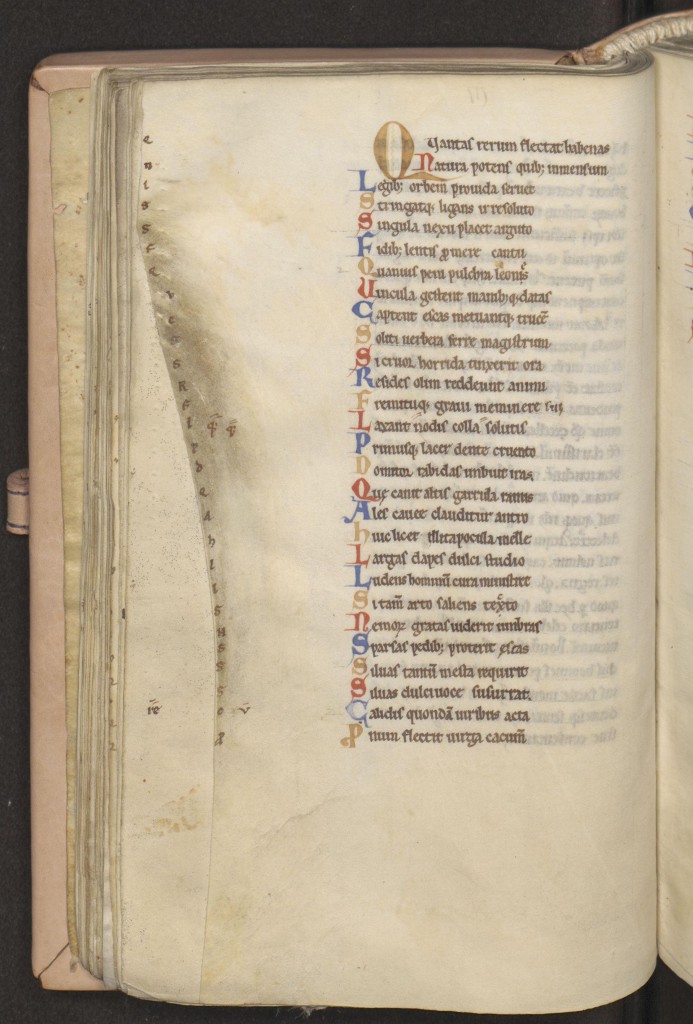 Qantas rerum flectat habenas
Natura potens quib; inmensum
Legib; orbem prouida seruet
Stringatq; ligans irresoluto
Singula nexu placet arguto
Fidib; lentis promere cantu
Quamuis peni pulchra leonis
Uincula gestent manib; q; datas
Captent escas metuantq; truce
Soliti uerbera ferre magistrum
Si cruor horrida tinxerit ora
Resides olim reddeunt animi
Fremituq; graui meminere sui
Laxant nodis colla solutis
Primusq; lacer dente cruento
Domitor rabidas imbuit iras
Que canit altis garrula ramis
Ales cauee clauditur antro
Huic licet illita pocula melle
Largas dapes dulci studio
Ludens hominum cura ministret
Si tam arto saliens texto
Nemorum gratas uiderit umbras
Sparsas pedib; proterit escas
Siluas tantum mesta requirit
Siluas dulci uoce susurrat.
Calidis quondā uiribus acta
Pinum flectit uirga cacum̄